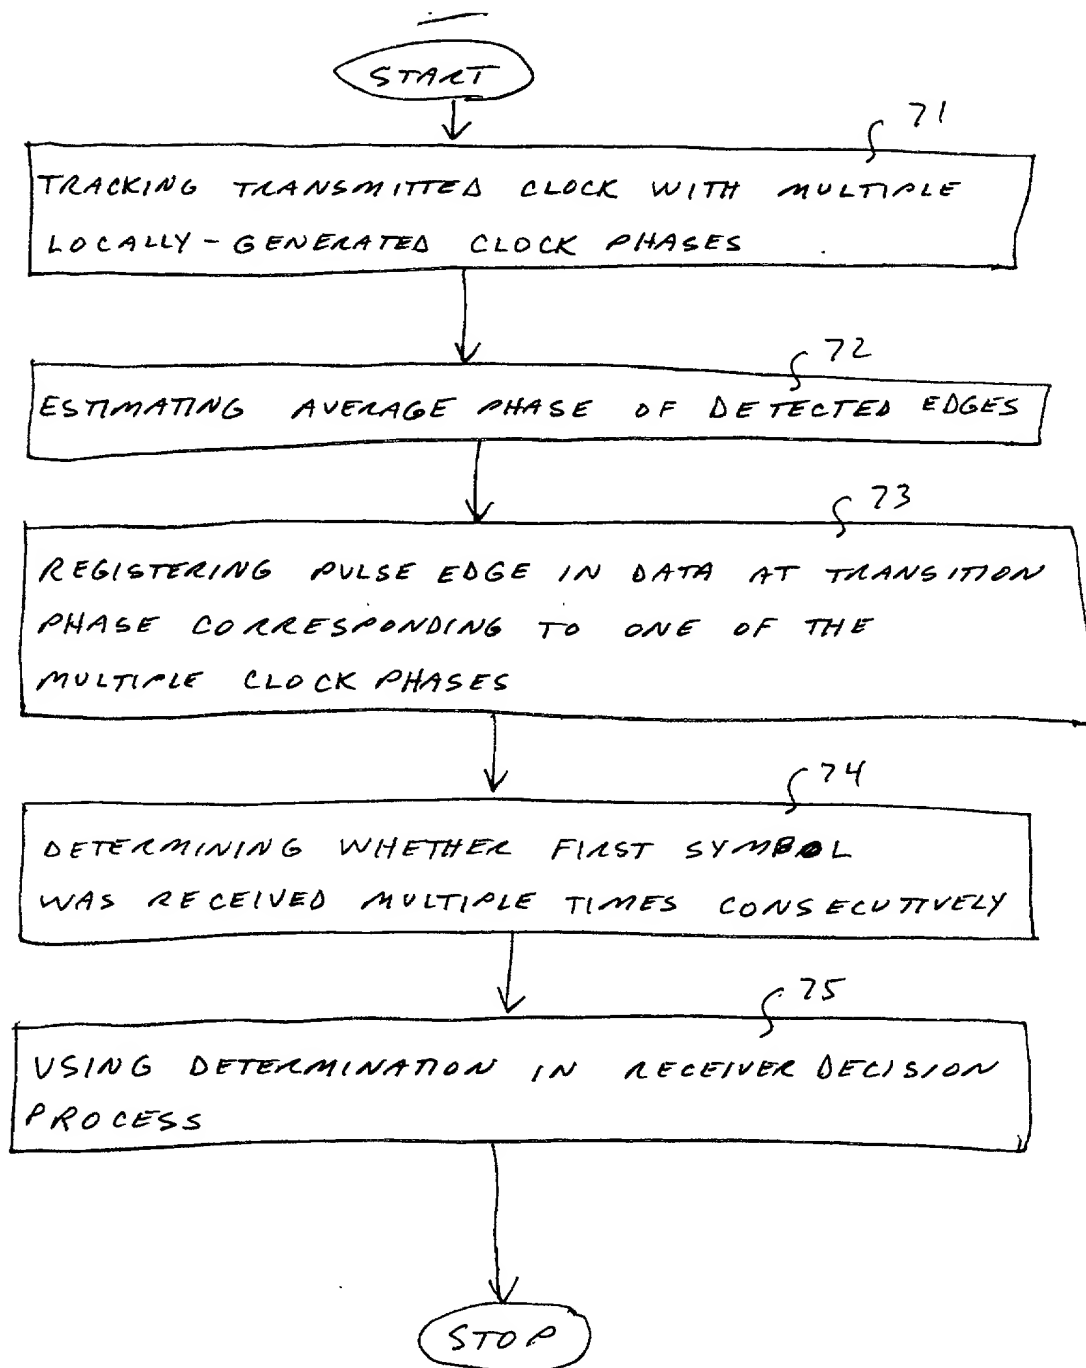 START
71
TRACKING TRANSMITTED CLOCK WITH MULTIPLE
LOCALLY-GENERATED CLOCK PHASES
72
ESTIMATING AVERAGE PHASE OF DETECTED EDGES
73
REGISTERING PULSE EDGE IN DATA AT TRANSITION
PHASE CORRESPONDING TO ONE OF THE
MULTIPLE CLOCK PHASES
74
DETERMINING WHETHER FIRST SYMBOL
WAS RECEIVED MULTIPLE TIMES CONSECUTIVELY
75
USING DETERMINATION IN RECEIVER DECISION
PROCESS
STOP